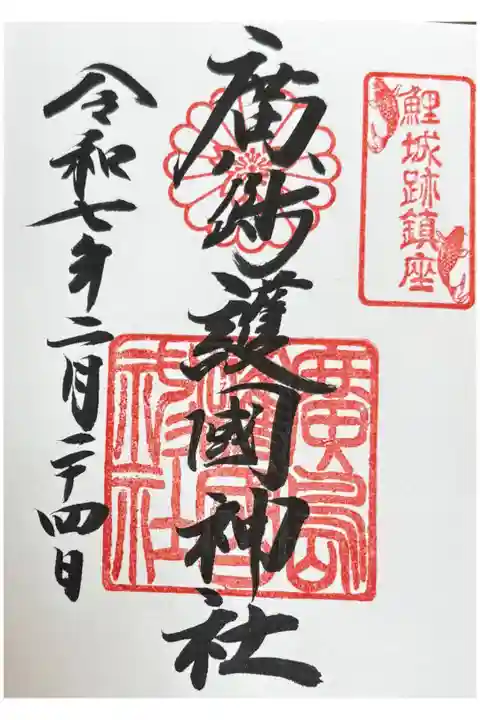 鯉城跡鎮座
廣島護國神社
廣島護國神社
令和七年二月二十四日